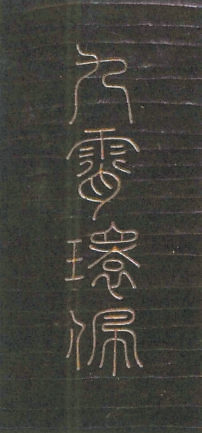 九霄環佩